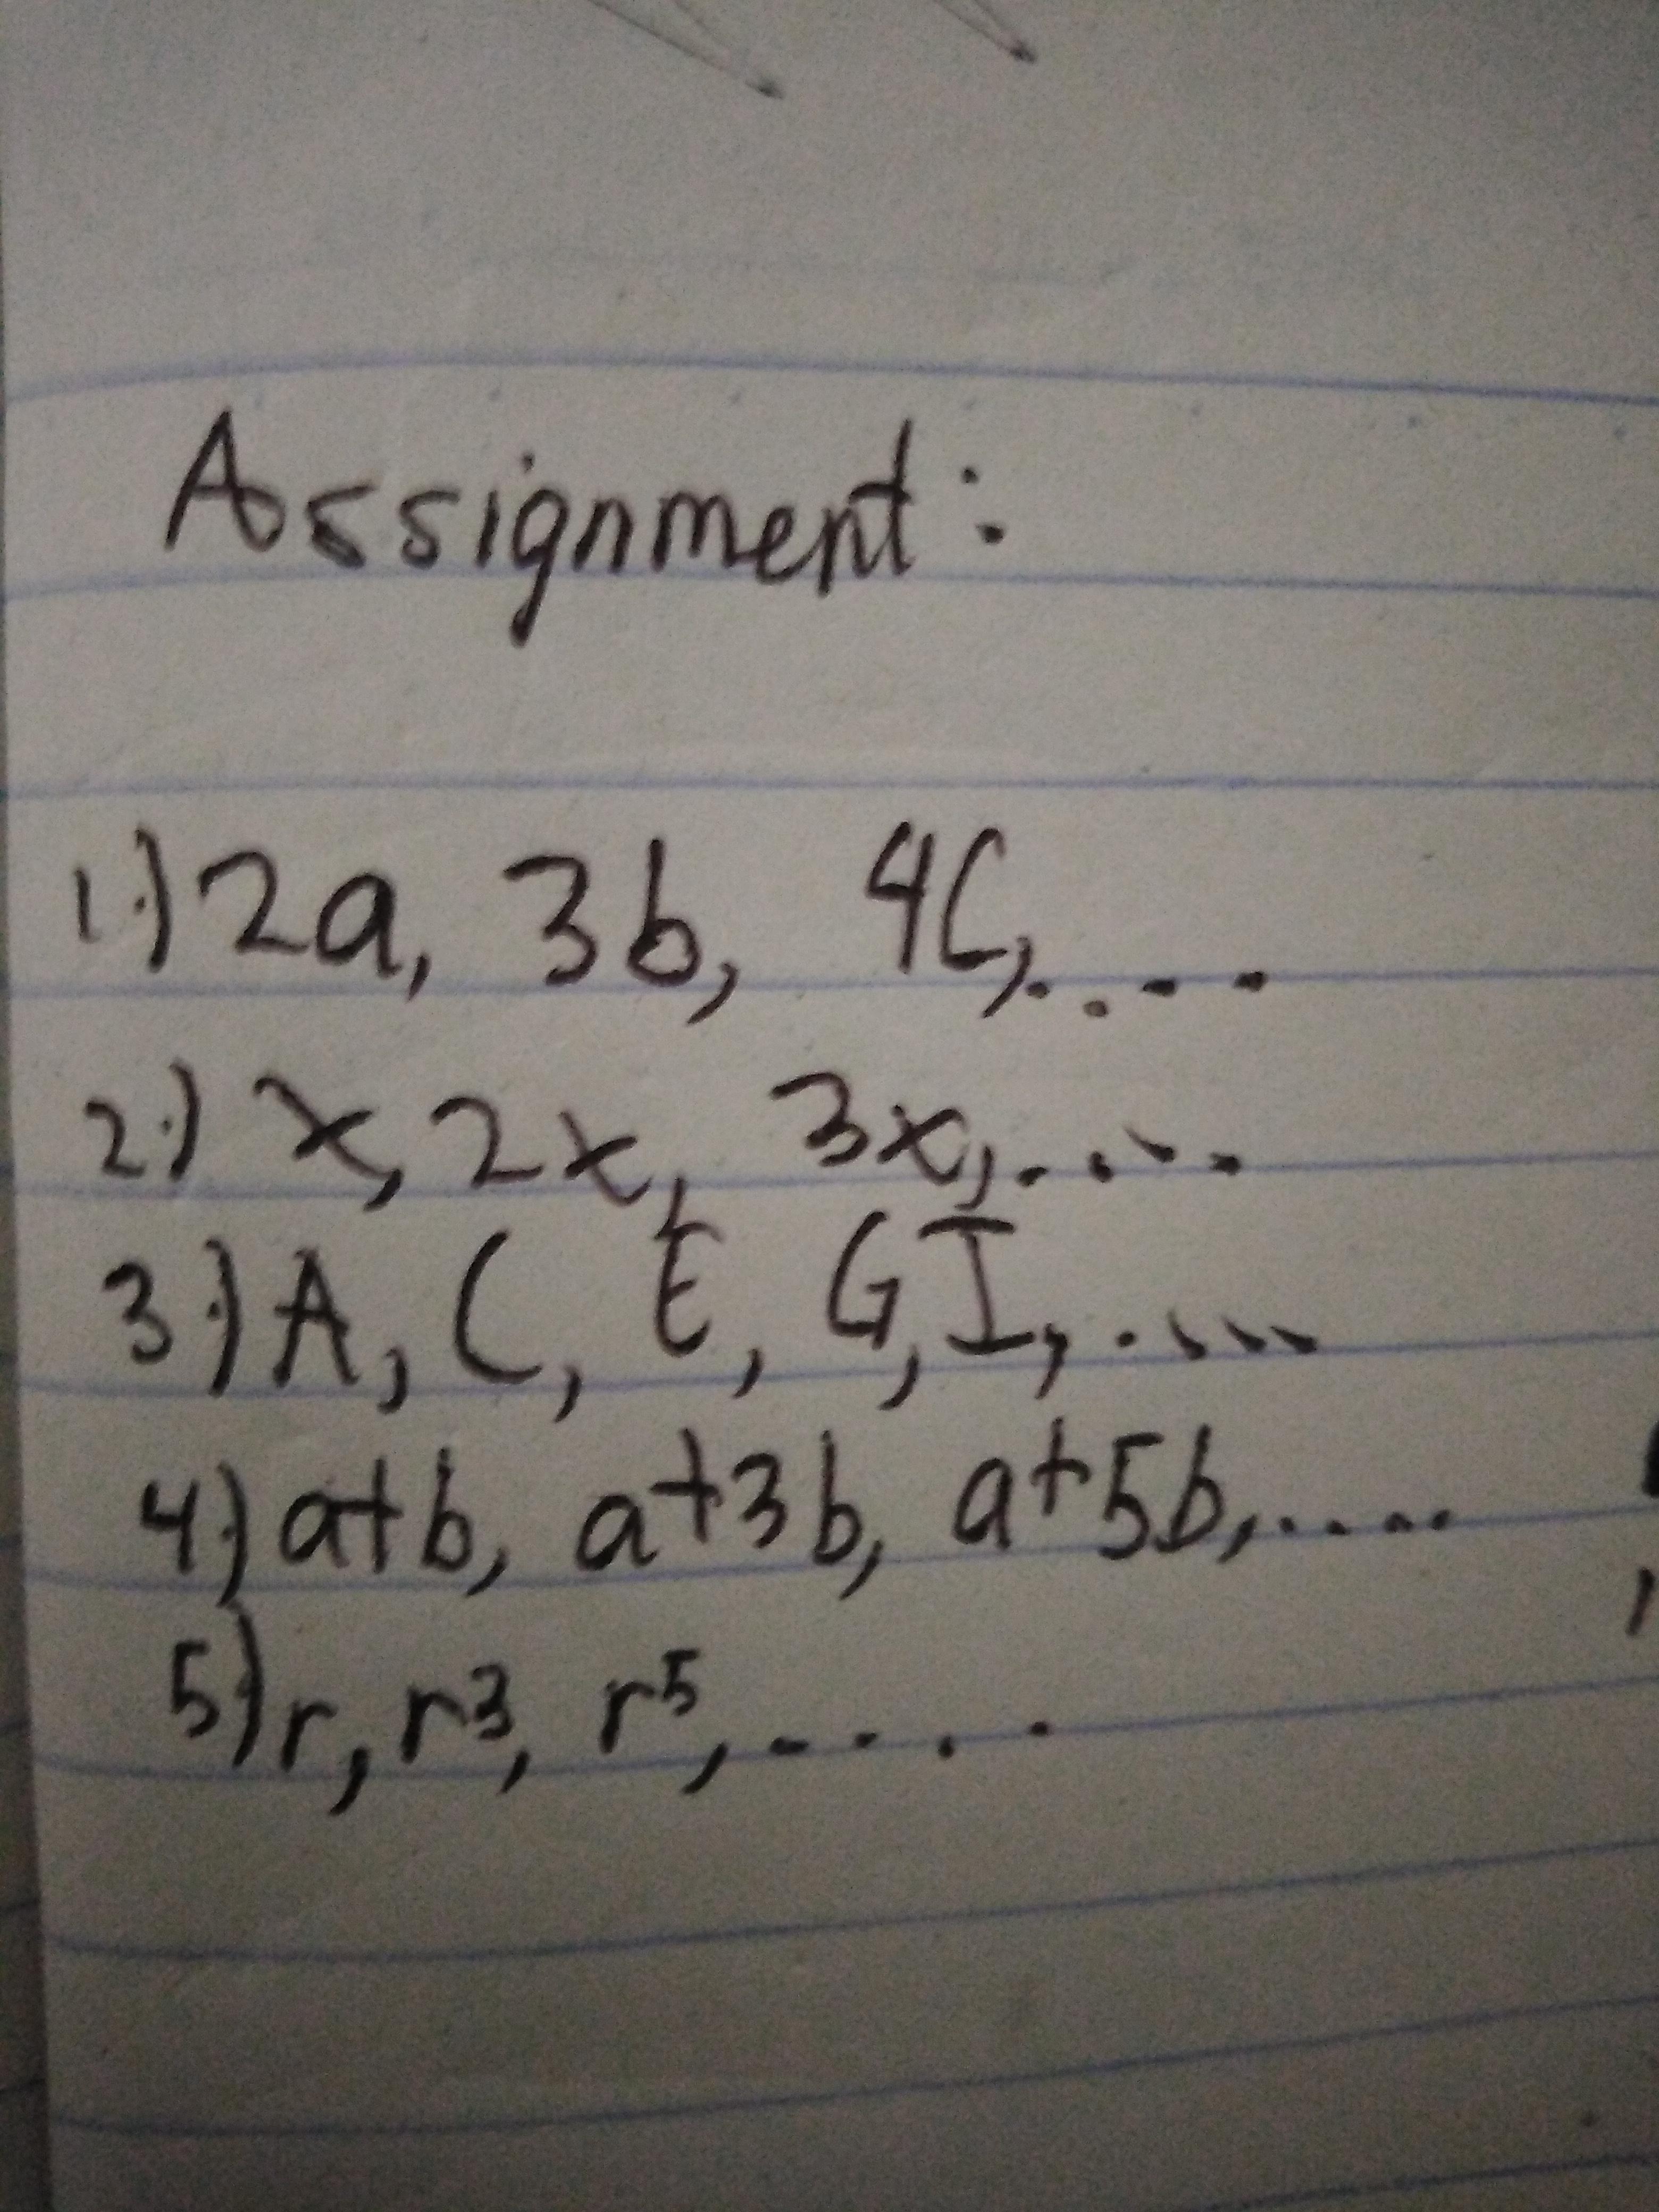 Assignment:
1.) 2a, 3b, 4C,....
2.) x, 2x, 3x,....
3.) A, C, E, G, I,....
4.) a+b, a+3b, a+5b,....
5.) r, r³, r⁵,....